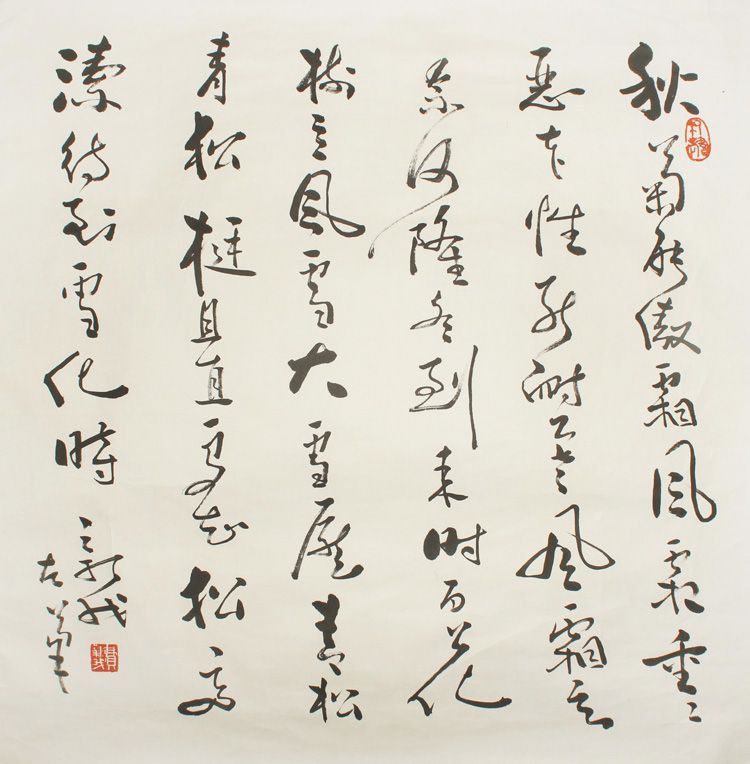 秋菊能傲霜風霜重々
惡本性能耐寒風霜其
奈何隆冬到来時百花
樹立風雪大雪壓青松
青松挺且直要知松高
潔待到雪化時
左筆